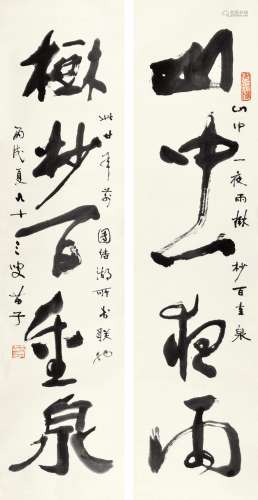 山中一夜雨
山中一夜雨樹杪百重泉
樹杪百重泉
此廿年前團結湖所書聯
丙戌夏九十三叟苗子